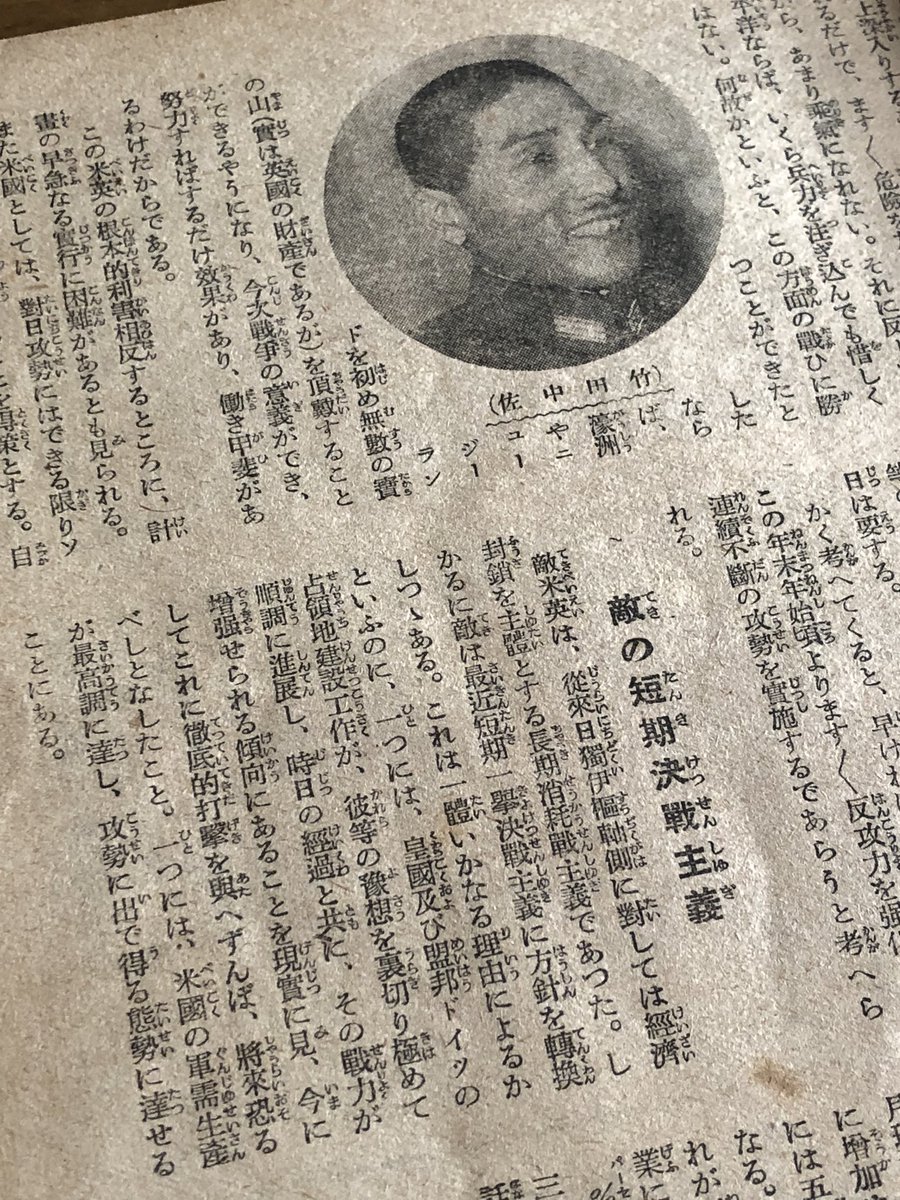 上深入りする
るだけで、ます〳〵危險が
から、あまり乘氣になれない。それに反し
平洋ならば、いくら兵力を注ぎ込んでも惜しく
はない。何故かといふと、この方面の戰ひに勝
つことができたと
した
なら
ば、
濠洲
やニ
ュー
ジー
ラン
ドを初め無數の寶
の山(實は英國の財產であるが)を頂戴すること
ができるやうになり、今次戰爭の意義ができ、
努力すればするだけ效果があり、働き甲斐があ
るわけだからである。
この米英の根本的利害相反するところに、計
畫の早急なる實行に困難があるとも見られる。
また米國としては、對日攻勢にはできる限りソ
とを專策とする。自
(竹田中佐)
日は要する。
かく考へてくると、早けれ
この年末年始頃よります〳〵反攻力を强化
連續不斷の攻勢を實施するであらうと考へら
れる。
敵の短期決戰主義
敵米英は、從來日獨伊樞軸側に對しては經濟
封鎖を主體とする長期消耗戰主義であつた。し
かるに敵は最近短期一擧決戰主義に方針を轉換
しつゝある。これは一體いかなる理由によるか
といふのに、一つには、皇國及び盟邦ドイツの
占領地建設工作が、彼等の豫想を裏切り極めて
順調に進展し、時日の經過と共に、その戰力が
增强せられる傾向にあることを現實に見、今に
してこれに徹底的打擊を與へずんば、將來恐る
べしとなしたこと。一つには、米國の軍需生產
が最高調に達し、攻勢に出で得る態勢に達せる
ことにある。
月
に增加
には五
なる。
れが
業に
三